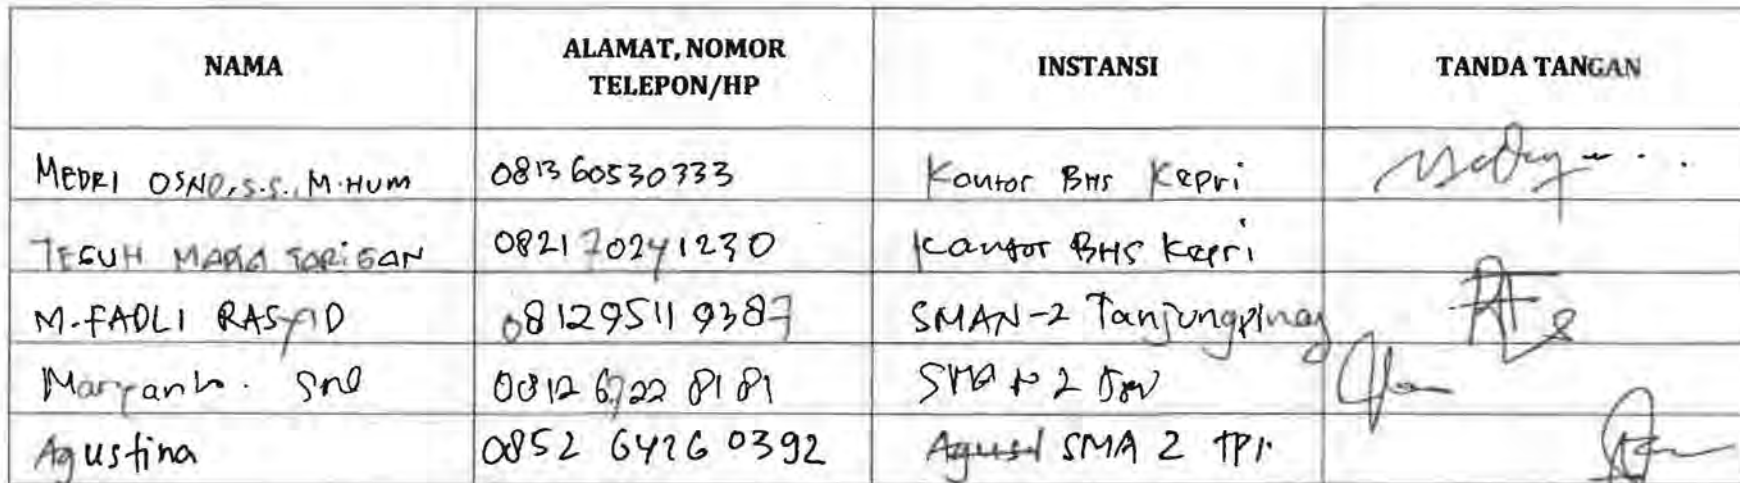 NAMA
ALAMAT, NOMOR TELEPON/HP
INSTANSI
TANDA TANGAN
MEDRI OSNO, S.S., M.HUM 081360530333 Kantor BHS Kepri
TEGUH TARIGAN 082170241230 Kantor BHS Kepri
M. FADLI RASYID 081295119387 SMAN-2 Tanjungpinag
Maryanto. 0812 6722 8181 SMA N 2
Agustina 0852 6426 0392 SMA 2 TPI.